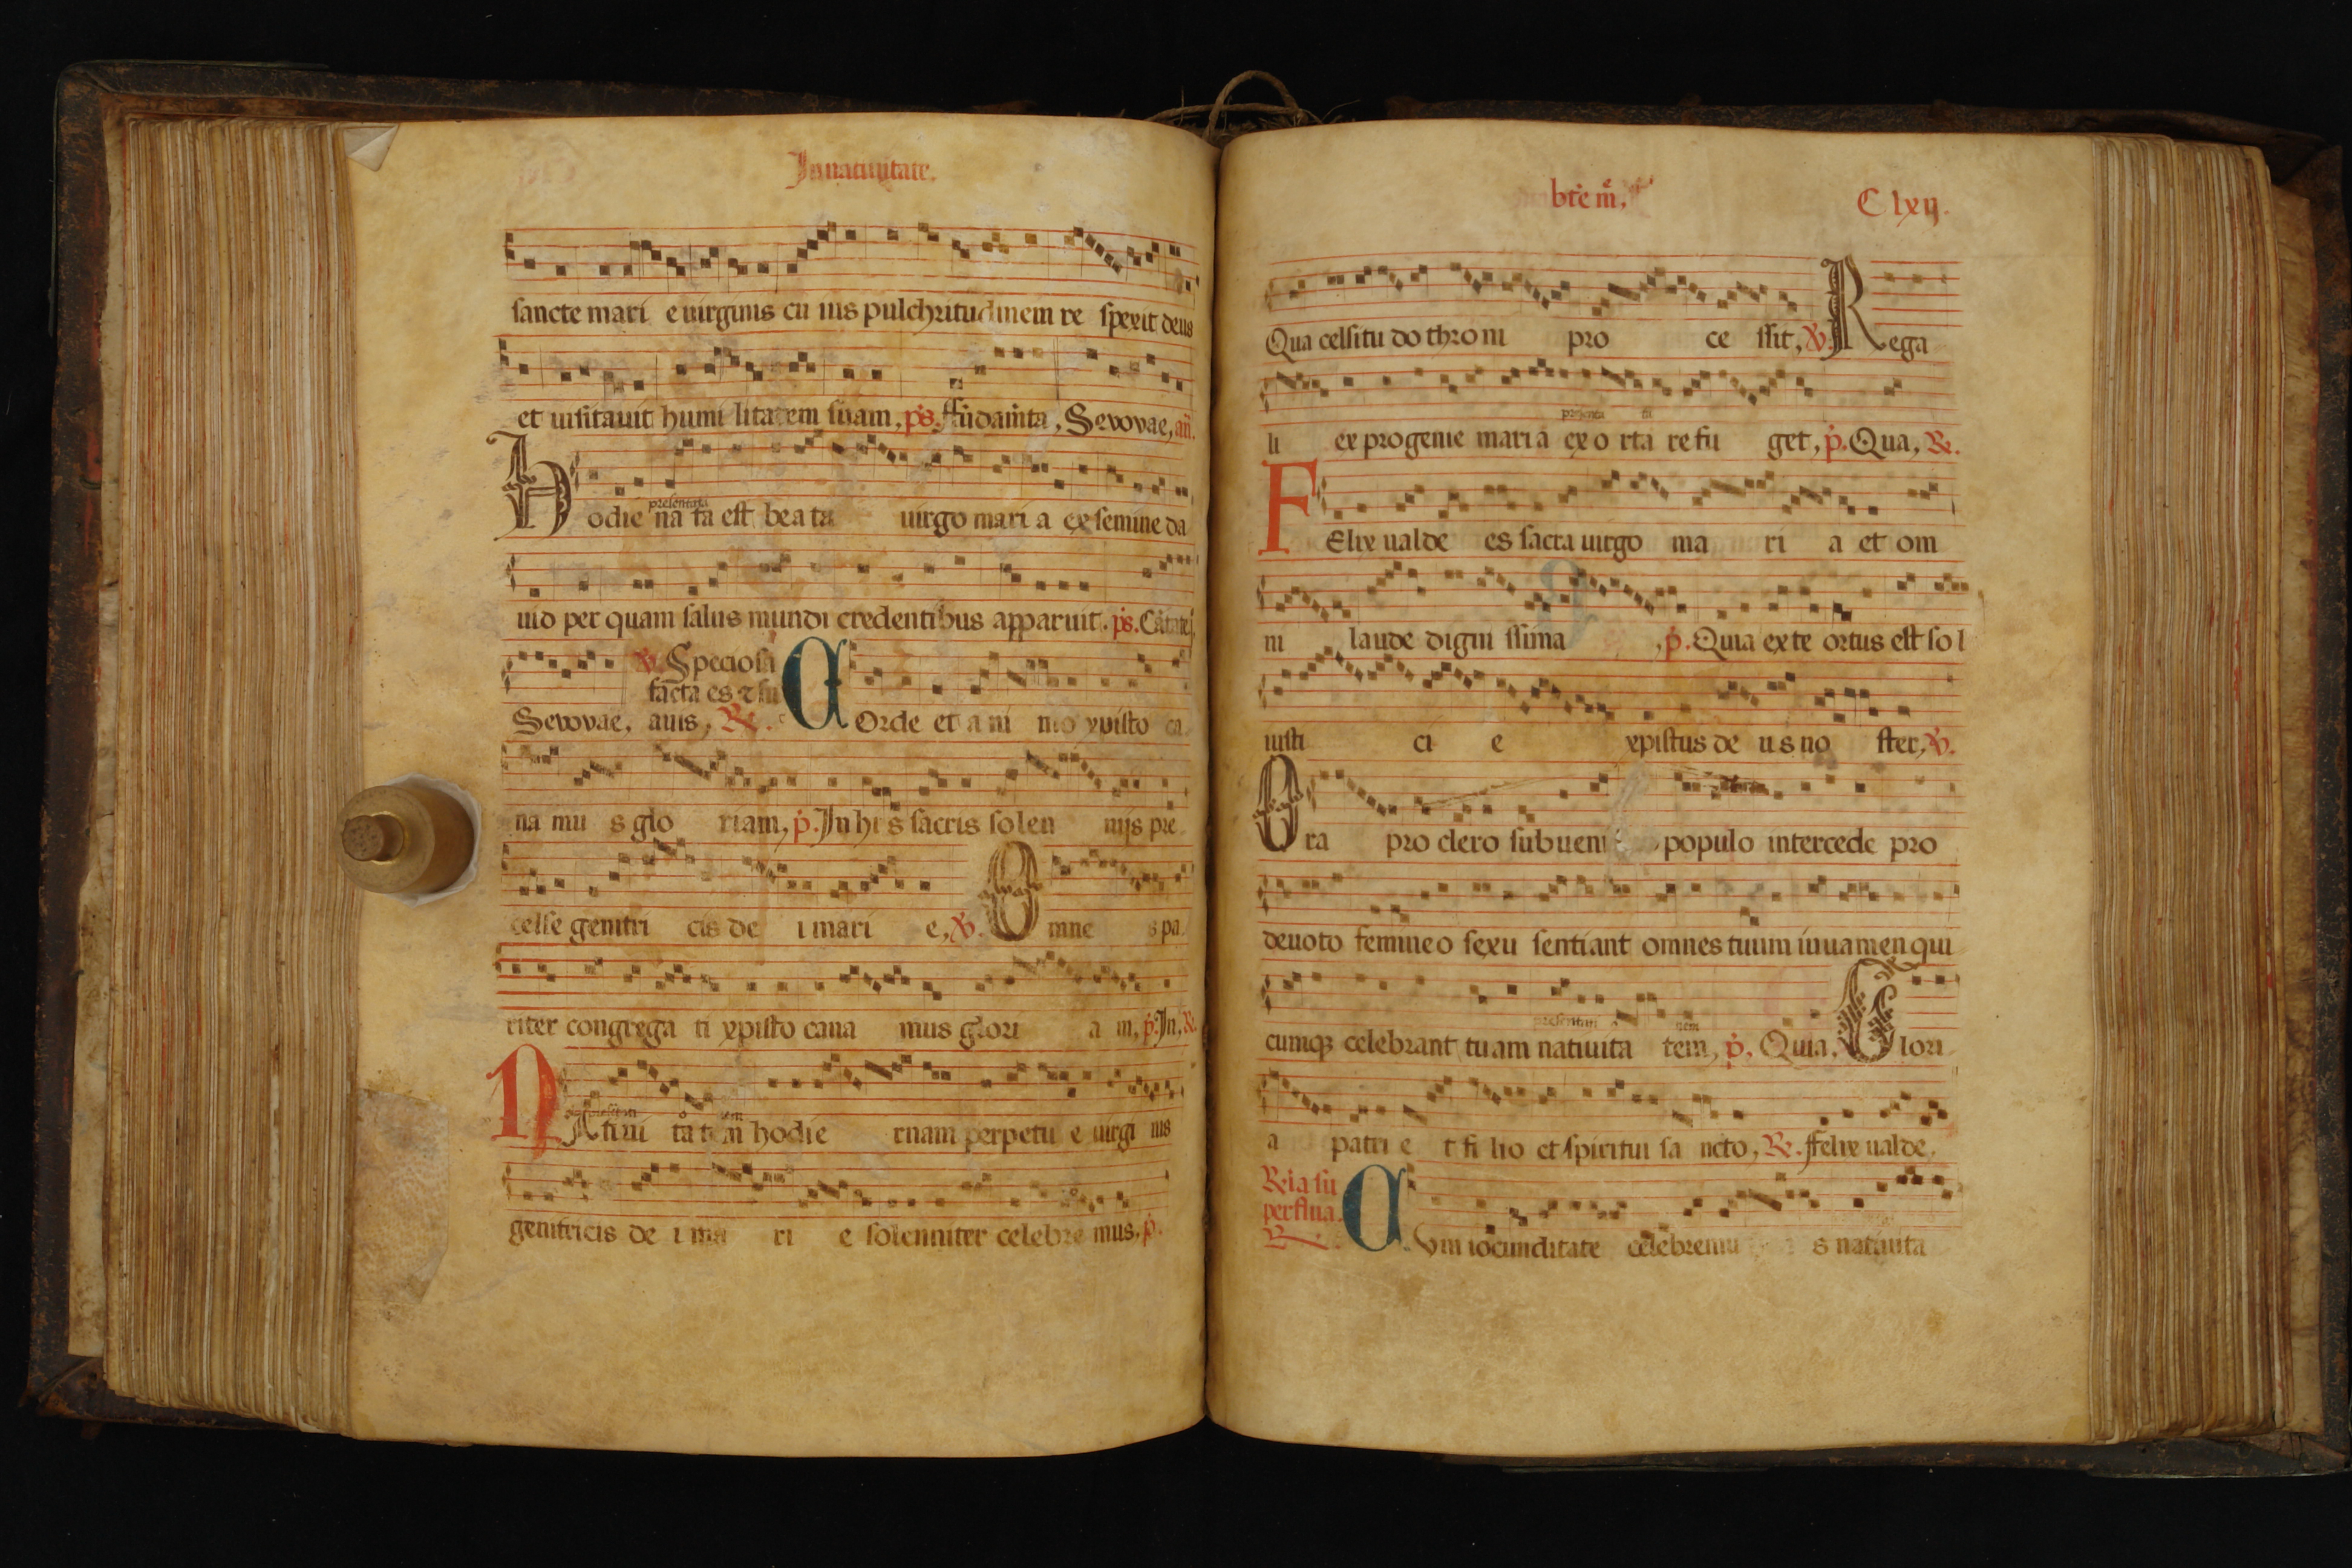 In natiuitate.
sancte mari e uirginis cu ius pulchritudinem re spexit deus
et uisitauit humi litatem suam, ps. ffūdam̄ta, Sevovae, añ.
presentata
Hodie na ta est beata uirgo mari a ex semine da
uid per quam salus mundi credentibus apparuit. ps. Cātate,
℣. Speciosa
facta es ⁊ su
Sevovae, auis, ℟. COrde et a ni mo xpisto ca
na mu s glo riam, p̄. In hi s sacris solen nijs pre
celse genitri cis de i mari e, ℣. Omne s pa
riter congrega ti xpisto cana mus glori a m, p̄. In, ℟.
NAtiui ta tem hodie rnam perpetu e uirgi nis
genitricis de i ma ri e solenniter celebre mus, p̄.
bt̄e m̄.
C lxij.
Qua celsitu do throni pro ce ssit, ℣. Rega
presenta ta
li ex progenie maria exo rta refu get, p̄. Qua, ℟.
FElix ualde es sacra uirgo ma ri a et om
ni laude digni ssima , p̄. Quia ex te ortus est so l
iusti ci e xpistus de u s no ster, ℣.
Ora pro clero subueni populo intercede pro
deuoto femineo sexu sentiant omnes tuum iuuamen qui
presentati o nem
cumqȝ celebrant tuam natiuita tem, p̄. Quia, Glori
a patri e t fi lio et spiritui sa ncto, ℟. ffelix ualde,
℟ia su
perflua.
℟. CVm iocunditate celebremu s natiuita